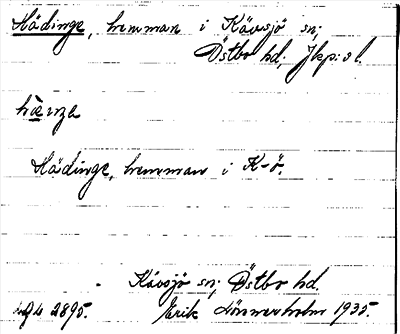 Hädinge, hemman i Kävsjö sn;
Östbo hd; Jkp:s l.
hä̀nga
Hädinge, hemman i K-ö.
Kävsjö sn; Östbo hd.
2895. Erik Lönnerholm 1935.